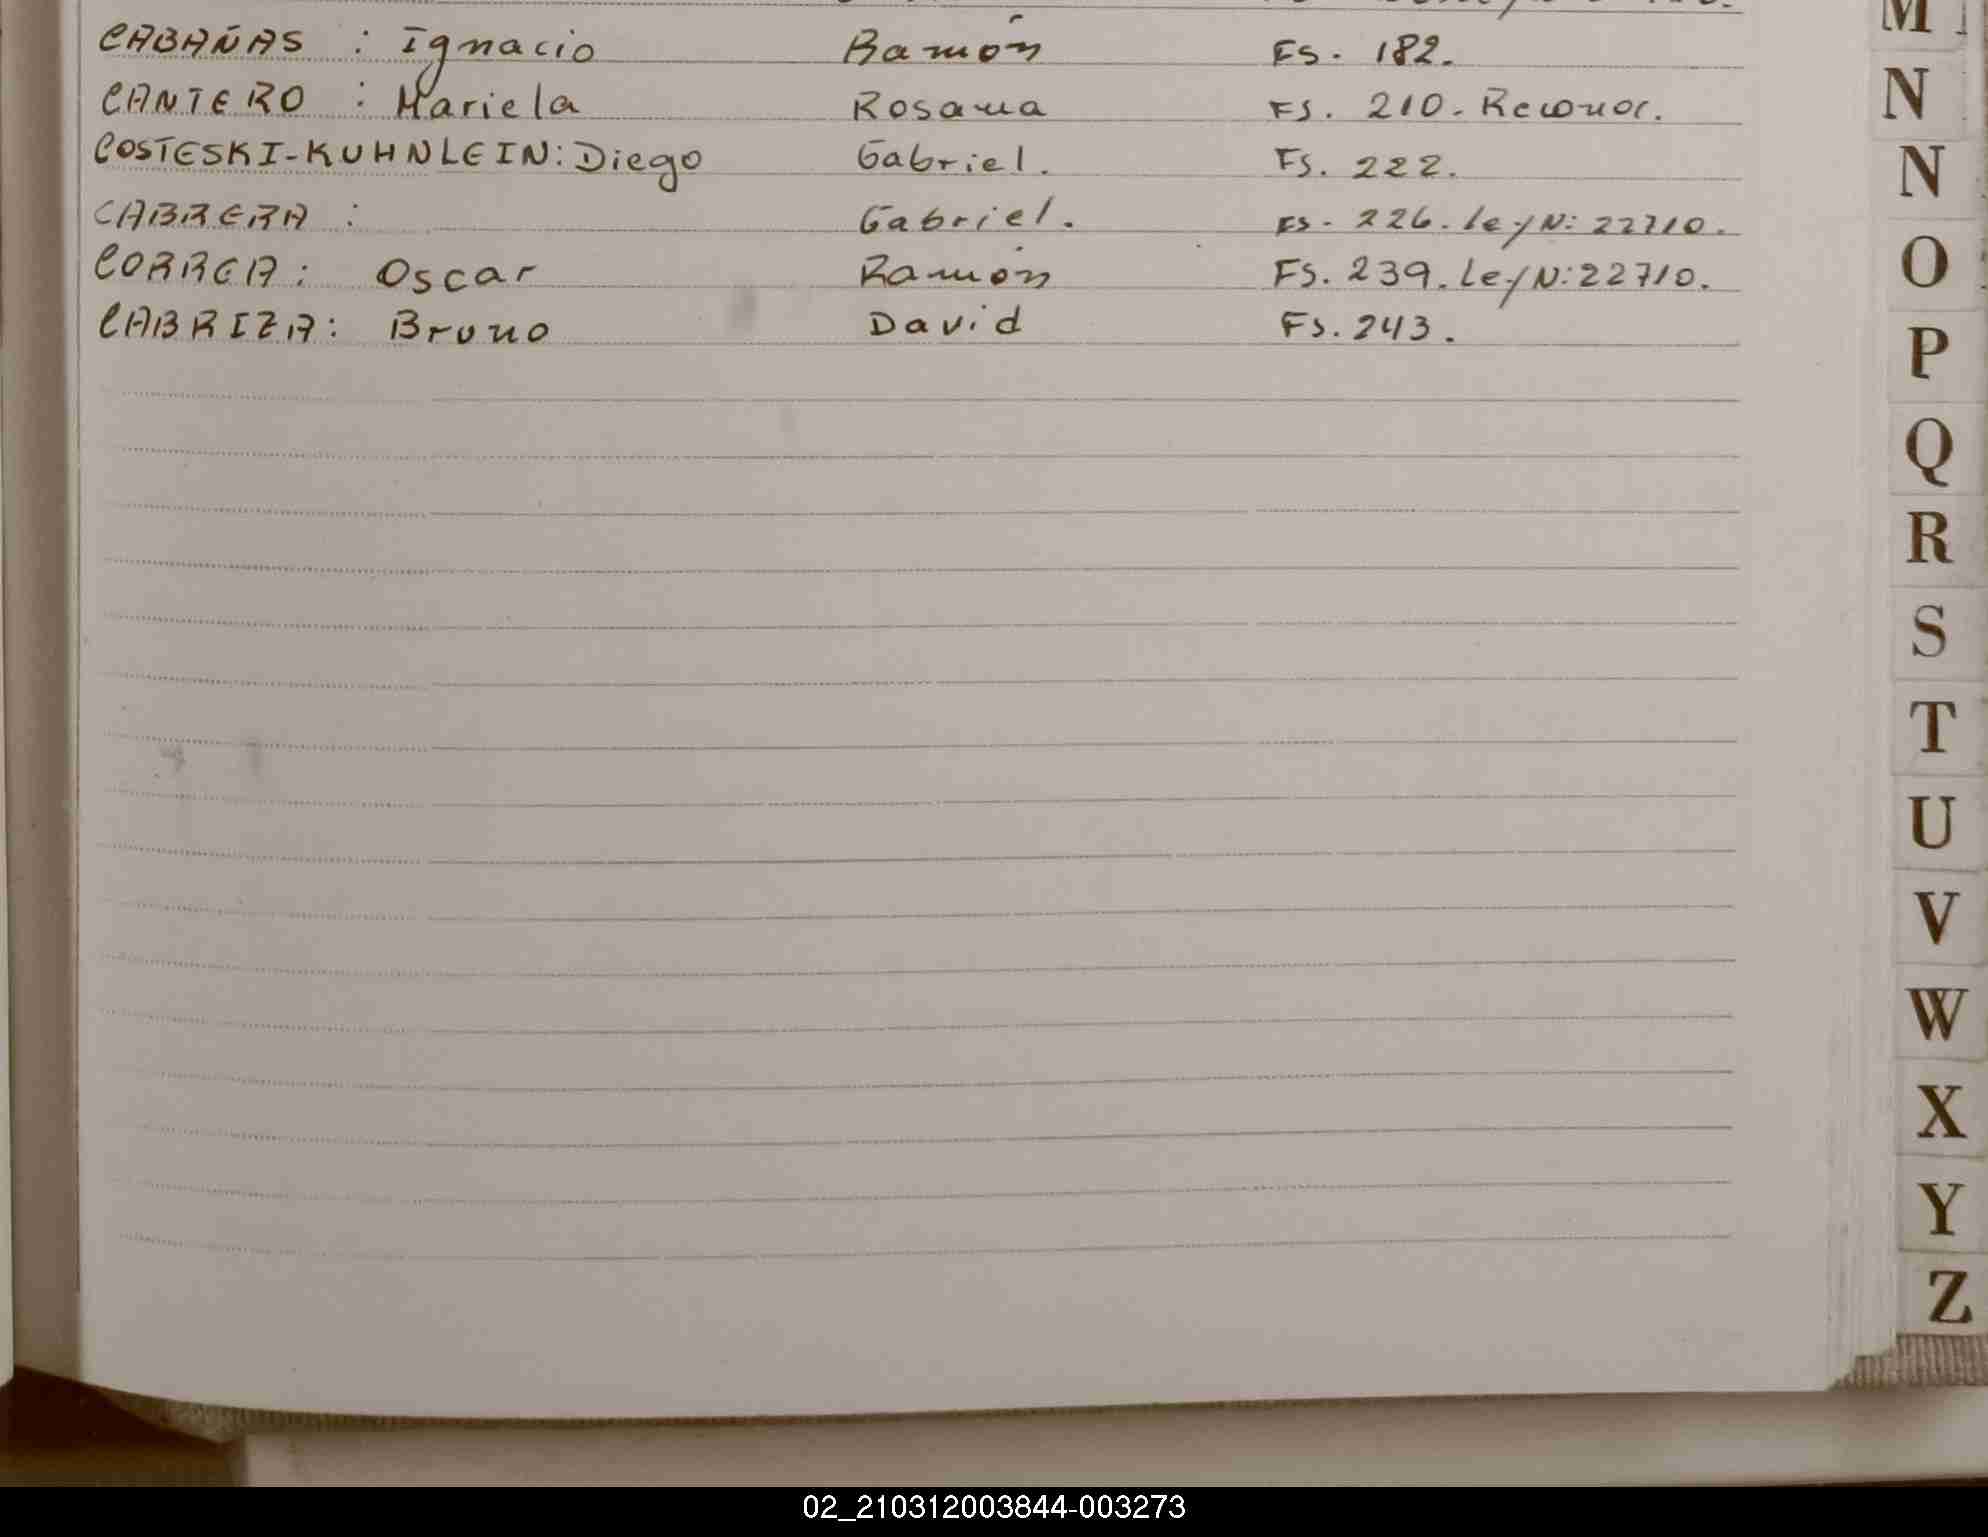 CABAÑAS : Ignacio Ramón FS. 182.
CANTERO : Mariela Rosana FS. 210. Reconoc.
COSTESKI-KUHNLEIN: Diego Gabriel. FS. 222.
CABRERA : Gabriel. FS. 226. Ley N: 22710.
CORREA: Oscar Ramón FS. 239. Ley N: 22710.
CABRIZA: Bruno David FS. 243.
M
N
N
O
P
Q
R
S
T
U
V
W
X
Y
Z
02_210312003844-003273